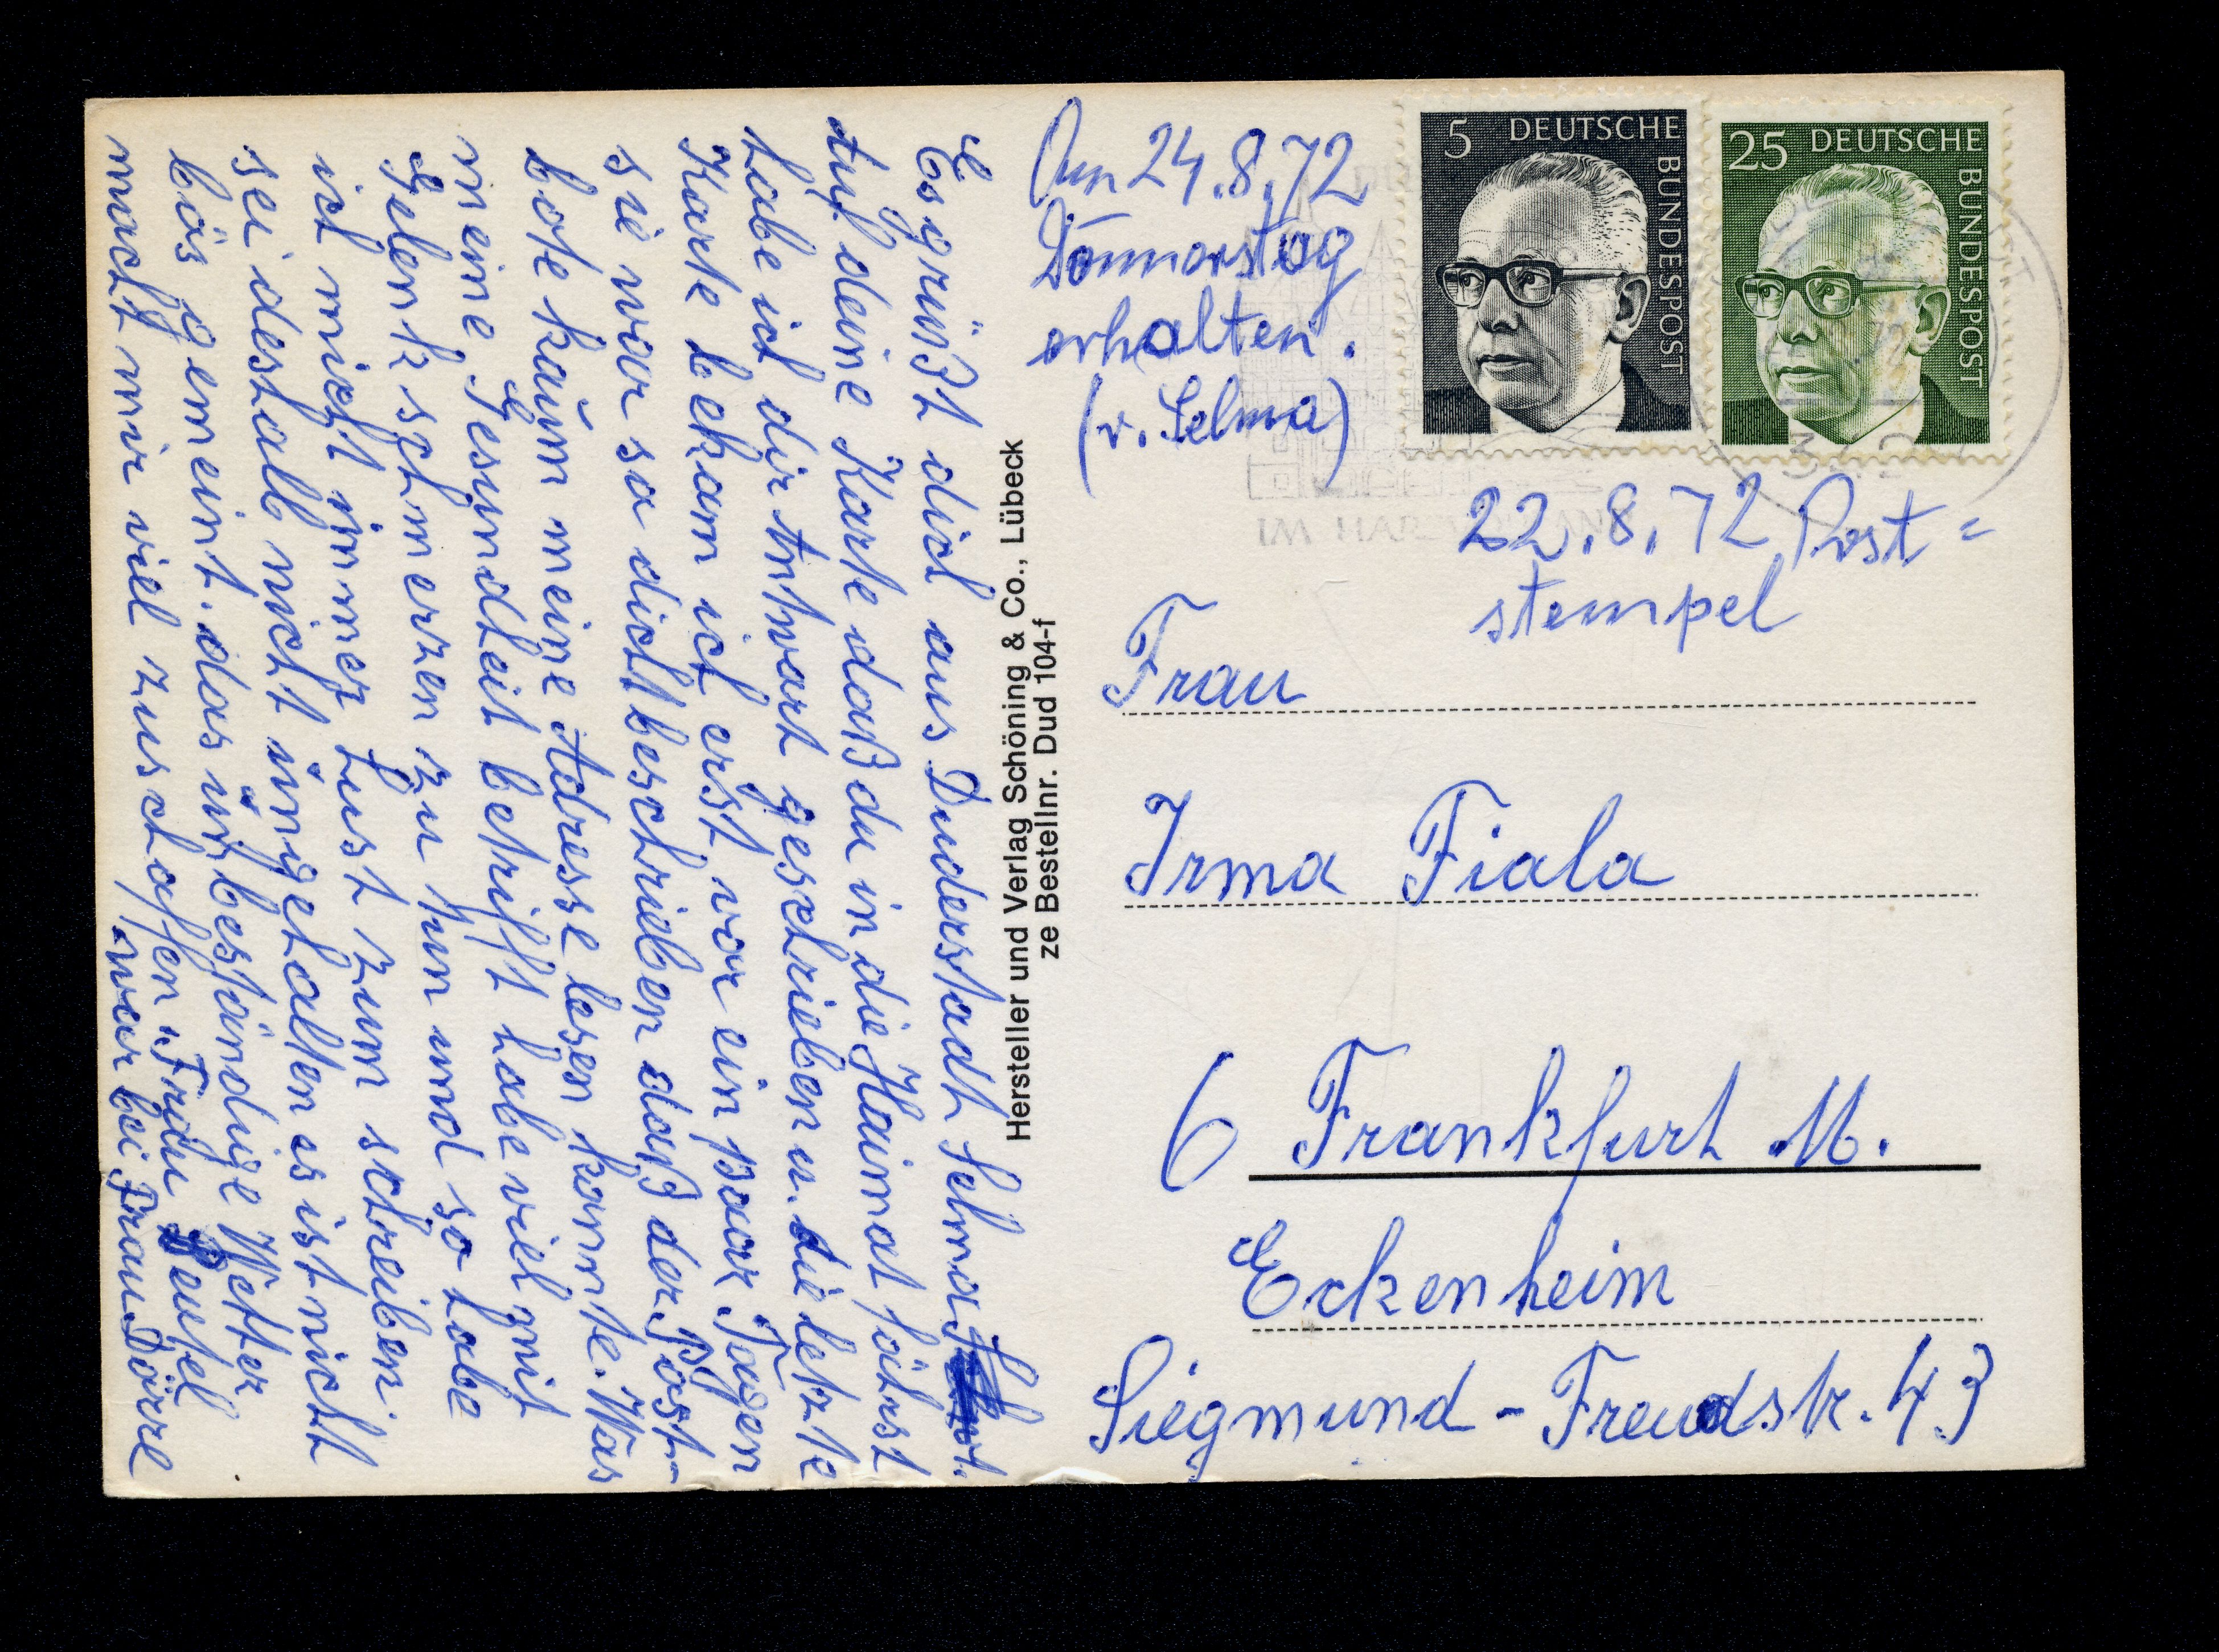 Es grüßt dich aus Duderstadt Selma
Auf deine Karte daß du in die Haimat fährst
habe ich dir Antwort geschrieben u. die letzte
Karte bekam ich erst vor ein paar Tagen
sie war so dicht beschrieben daß der Post-
bote kaum meine Adresse lesen konnte. Was
meine Gesundheit betrifft habe viel mit
Gelenkschmerzen zu tun und so habe
ich nicht immer Lust zum schreiben.
sei deshalb nicht ungehalten es ist nicht
bös gemeint. das unbeständige Wetter
macht mir viel zuschaffen. Frau Beutel
war bei Frau Dörre
Hersteller und Verlag Schöning & Co., Lübeck
ze Bestellnr. Dud 104-f
Am 24.8.72
Donnerstag
erhalten.
(v. Selma)
5 DEUTSCHE BUNDESPOST
25 DEUTSCHE BUNDESPOST
IM HARZ
22.8.72 Post=
stempel
Frau
Irma Fiala
6 Frankfurt M.
Eckenheim
Siegmund-Freudstr. 43